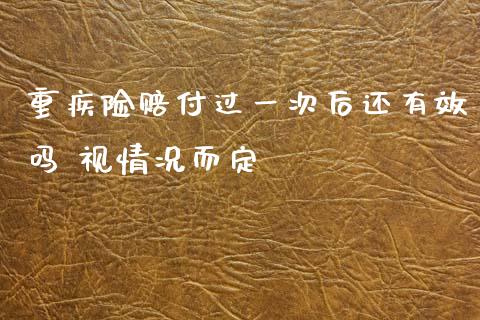 重疾险赔付过一次后还有效
吗 视情况而定